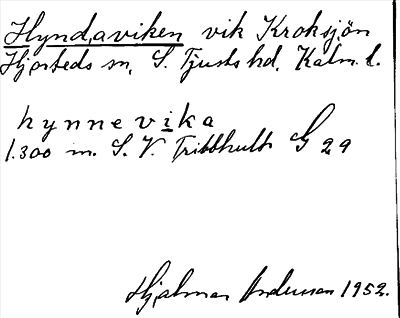 Hyndaviken vik Kroksjön
Hjorteds sn, S. Tjusts hd, Kalm. l.
hynnevika
1.300 m. S. V. Tribbhult G 29
Hjalmar Andersson 1952.